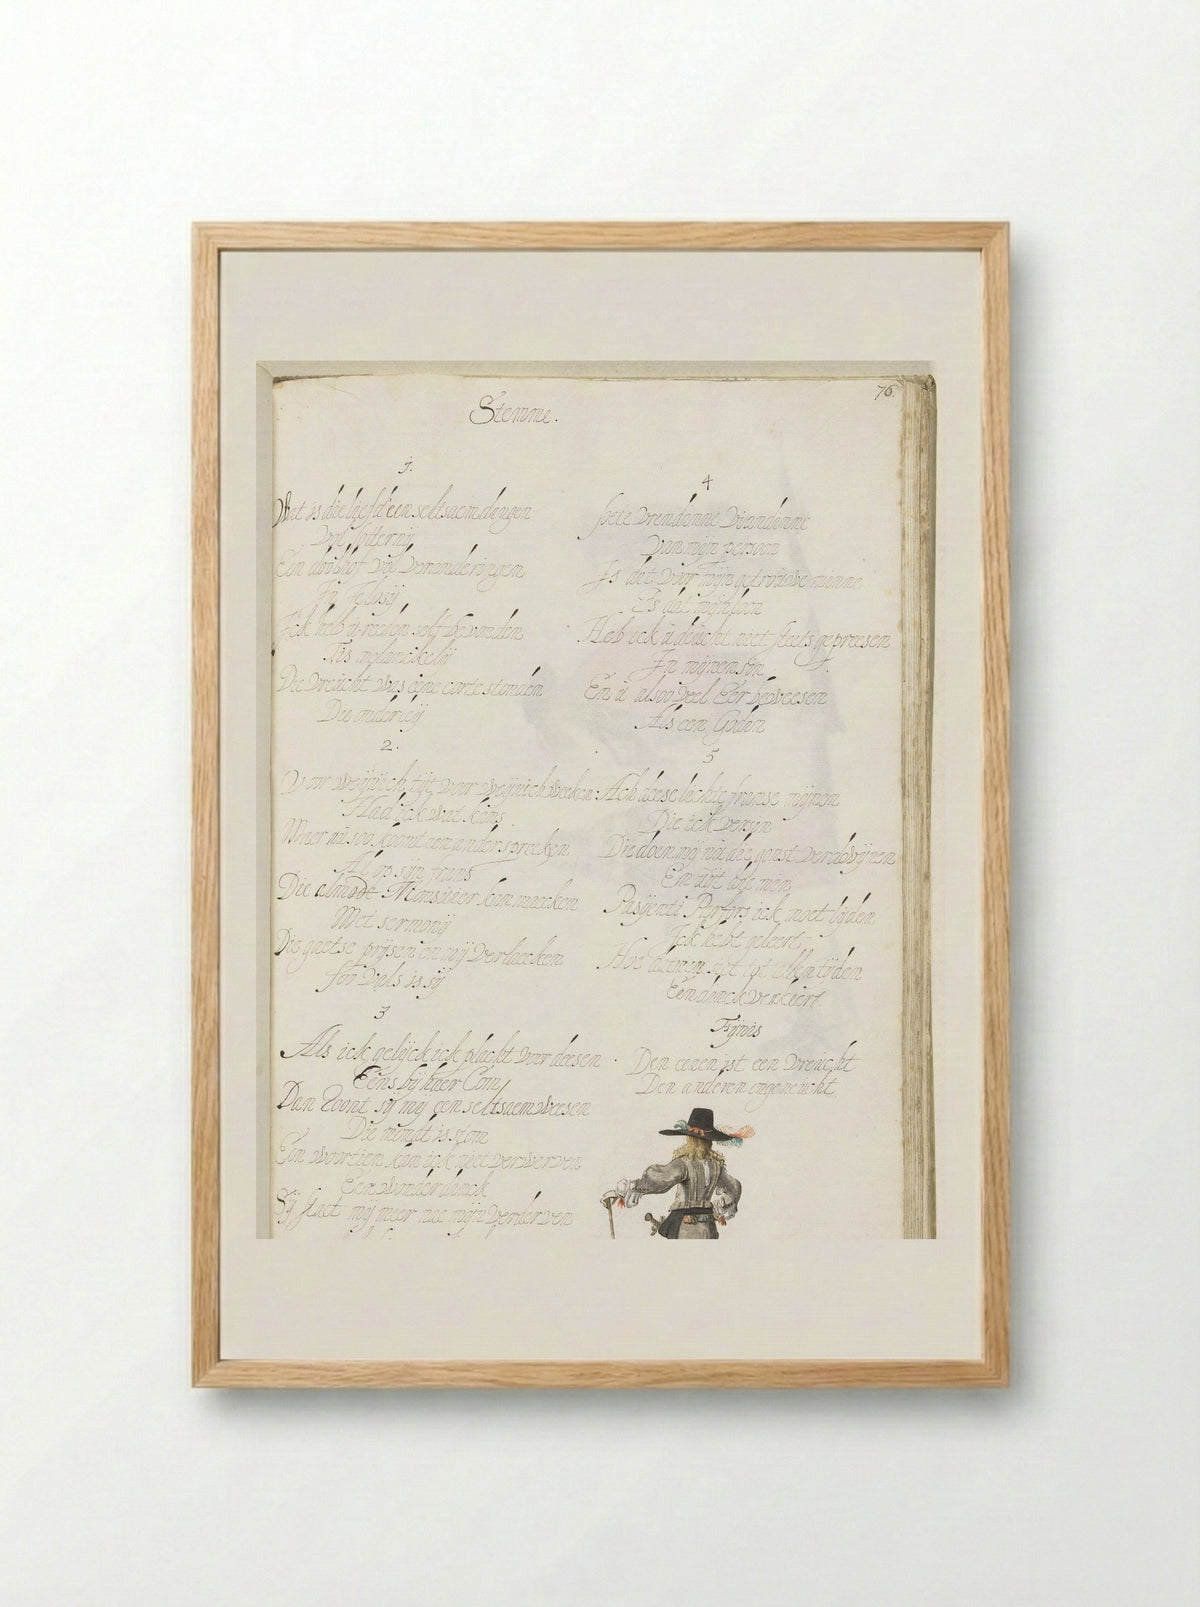 Stemme.
76.
1.
Wat is die liefd een seltsaem dengen
Vol sotternij
Een doolhof vol veranderingen
In Jelosij
Ick heb u reeden self bevonden
Tis melanckelij
Die vreucht was eene corte stonden
Die onder
2.
Voor weijnich tijt, voor weijnich weeken
Had ick wat kans
Maer nu soo koomt een ander spreeken
Al op sijn frans
Die almode Monsieer kan maecken
Met sermonij
Die gaetse prijsen en mij verlaecken
Soo vals is sij
3
Als ick gelijck ick placht voor deesen
Eens bij haer Com
Dan toont sij mij een seltsaem weesen
Die mondt is stom
Een woortien kan ick niet verwerven
Een wonder dinck
Sij staet mij meer nae mijn verderven
4
Soete vrendinne viandinne
Van mijn persoon
Is dat voor mijn getrouwe minne
Is dat mijn loon
Heb ick u deucht niet steets gepreesen
In mijnen sin
En u alsoo veel Eer beweesen
Als een Godin
5
Ach deese lichte franse mijnen
Die ick versin
Die doen mij nu dee gonst verdwijnen
En uijt
Pasijenti Parfors ick moet lijden
Ick hebt geleert
Hoe dat tot allen tijden
Een dinck verkeert.
Fijnis
Den eenen ist een vreucht
Den anderen ongeneucht.